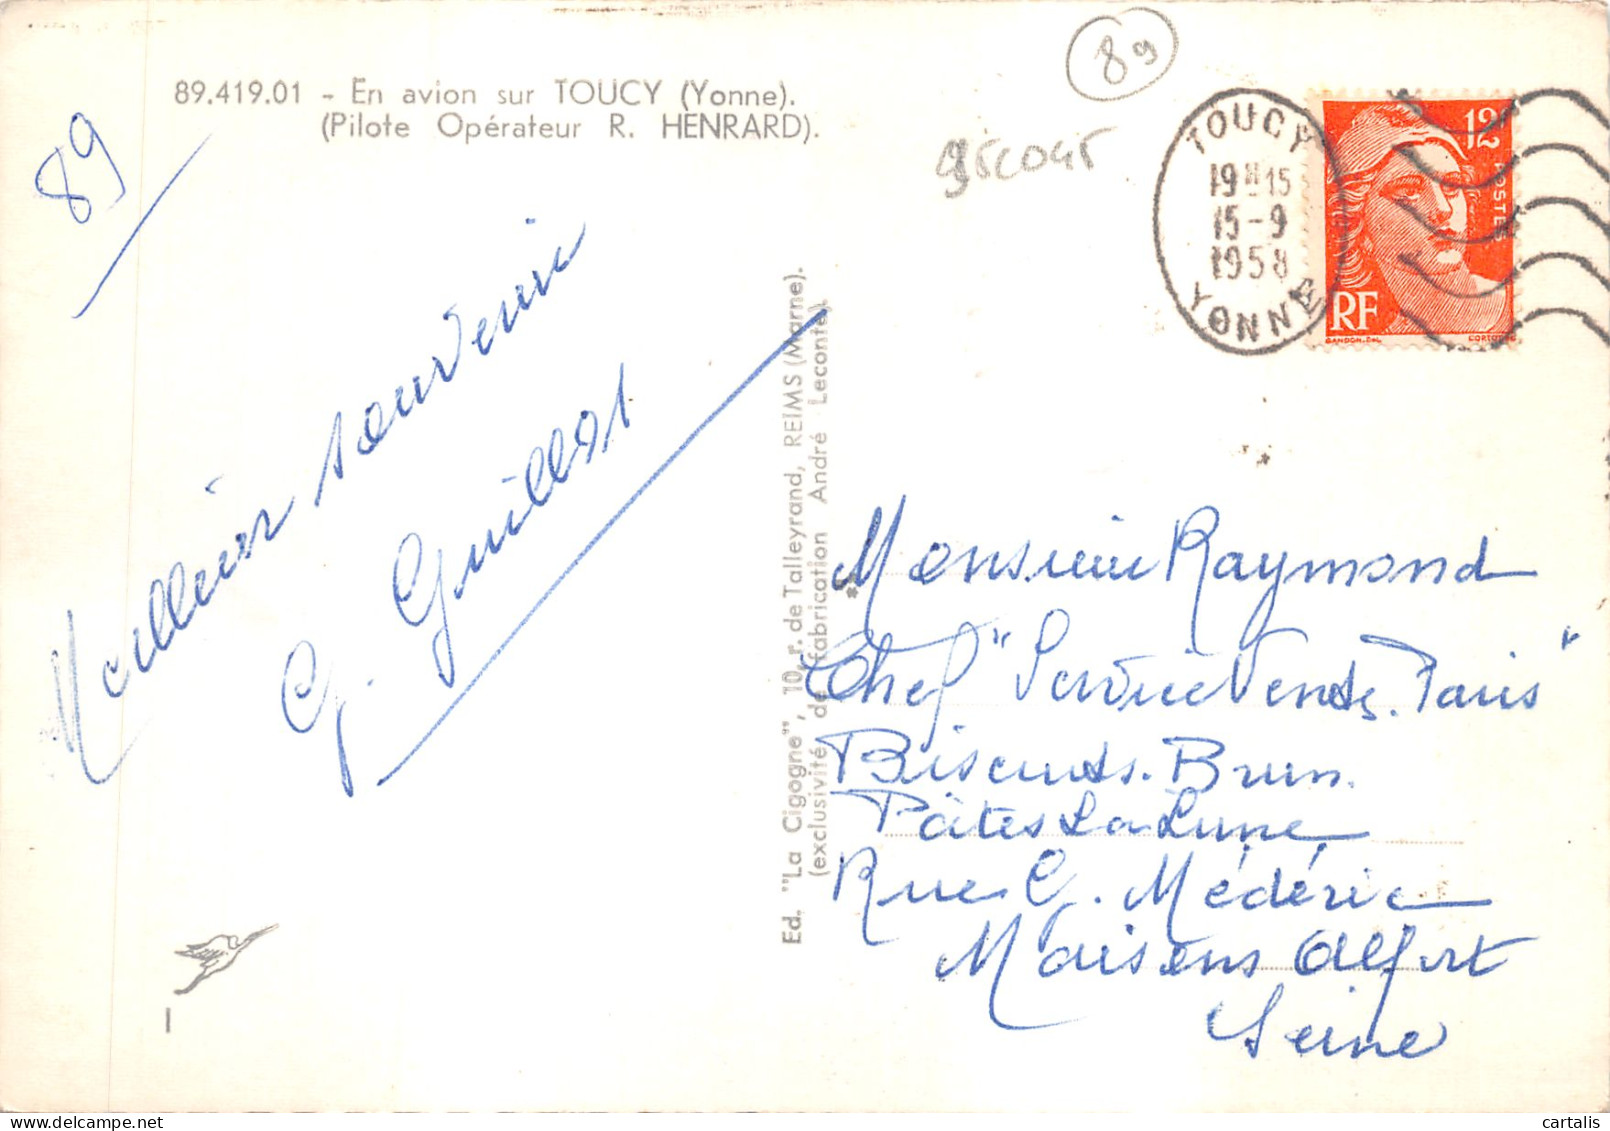 89.419.01 - En avion sur TOUCY (Yonne).
(Pilote Opérateur R. HENRARD).
89
89
TOUCY
19H15
15-9
1958
YONNE
12F
POSTES
RF
GANDON.DEL
CORTOT.SC
Meilleur souvenir
G. Guillot
Ed. "La Cigogne", 10, r. de Talleyrand, REIMS (Marne).
(exclusivité de fabrication André Leconte)
Monsieur Raymond
Chef "Service Ventes. Paris"
Biscuits. Brun.
Pâtes La Lune
Rue G. Médéric
Maisons Alfort
Seine
I
© cartalis www.delcampe.net